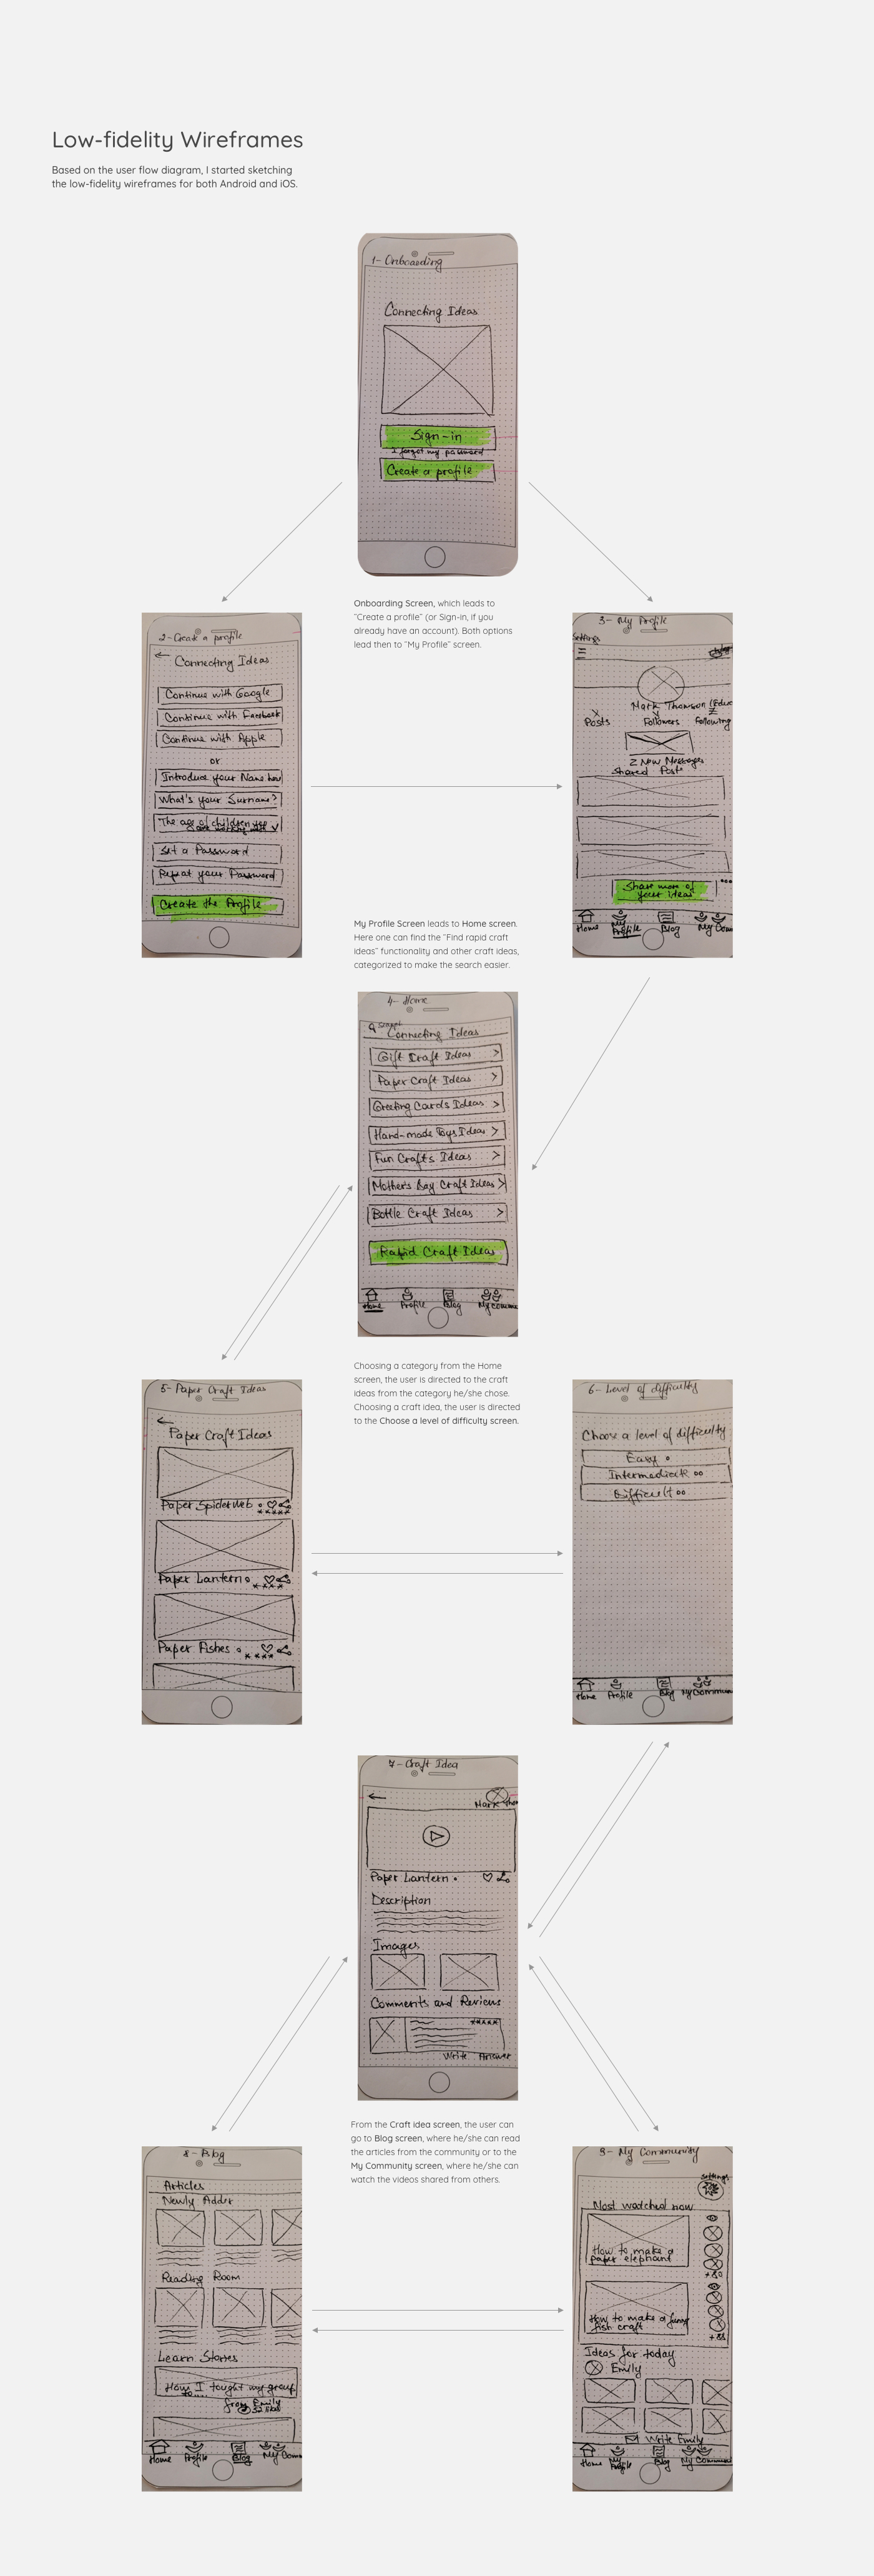 Low-fidelity Wireframes
Based on the user flow diagram, I started sketching
the low-fidelity wireframes for both Android and iOS.
1- Onboarding
Connecting Ideas
Sign-in
I forgot my password
Create a profile
Onboarding Screen, which leads to
“Create a profile” (or Sign-in, if you
already have an account). Both options
lead then to “My Profile” screen.
2- Create a profile
Connecting Ideas
Continue with Google
Continue with Facebook
Continue with Apple
or
Introduce your Name here
What's your Surname?
The age of children you
are working with
Set a Password
Repeat your Password
Create the Profile
3- My Profile
Settings
Mark Thomson (Educ
Posts
Followers
Following
2 New Messages
Shared Posts
Share more of
your ideas
Home
My Profile
Blog
My Com
My Profile Screen leads to Home screen.
Here one can find the “Find rapid craft
ideas” functionality and other craft ideas,
categorized to make the search easier.
4- Home
Connecting Ideas
Gift Craft Ideas
Paper Craft Ideas
Greeting Cards Ideas
Hand-made Toys Ideas
Fun Crafts Ideas
Mother's Day Craft Ideas
Bottle Craft Ideas
Rapid Craft Ideas
Home
Profile
Blog
My commu
Choosing a category from the Home
screen, the user is directed to the craft
ideas from the category he/she chose.
Choosing a craft idea, the user is directed
to the Choose a level of difficulty screen.
5- Paper Craft Ideas
Paper Craft Ideas
Paper Spiderweb
Paper Lantern
Paper Fishes
6- Level of difficulty
Choose a level of difficulty
Easy
Intermediate
Difficult
Home
Profile
Blog
My Commun
7- Craft Idea
Mark Thom
Paper Lantern
Description
Images
Comments and Reviews
Write Answer
From the Craft idea screen, the user can
go to Blog screen, where he/she can read
the articles from the community or to the
My Community screen, where he/she can
watch the videos shared from others.
8- Blog
Articles
Newly Added
Reading Room
Learn Stories
How I tought my group
to....
from Emily
32 likes
Home
Profile
Blog
My Comm
9- My Community
Settings
Most watched now
How to make a
paper elephant
+80
How to make a funny
fish craft
+88
Ideas for today
Emily
Write Emily
Home
My Profile
Blog
My Commun